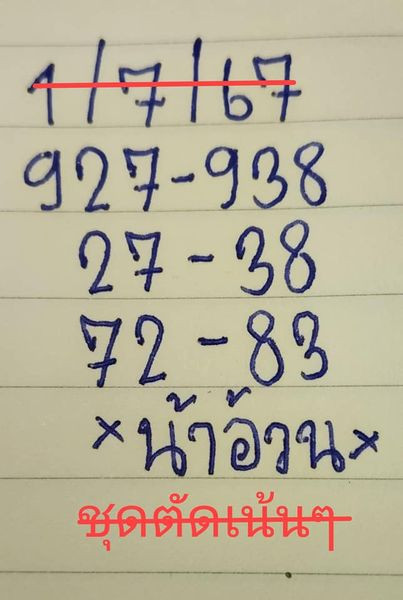 1/7/67
927-938
27-38
72-83
×น้าอ้วน×
ชุดตัดเน้นๆ